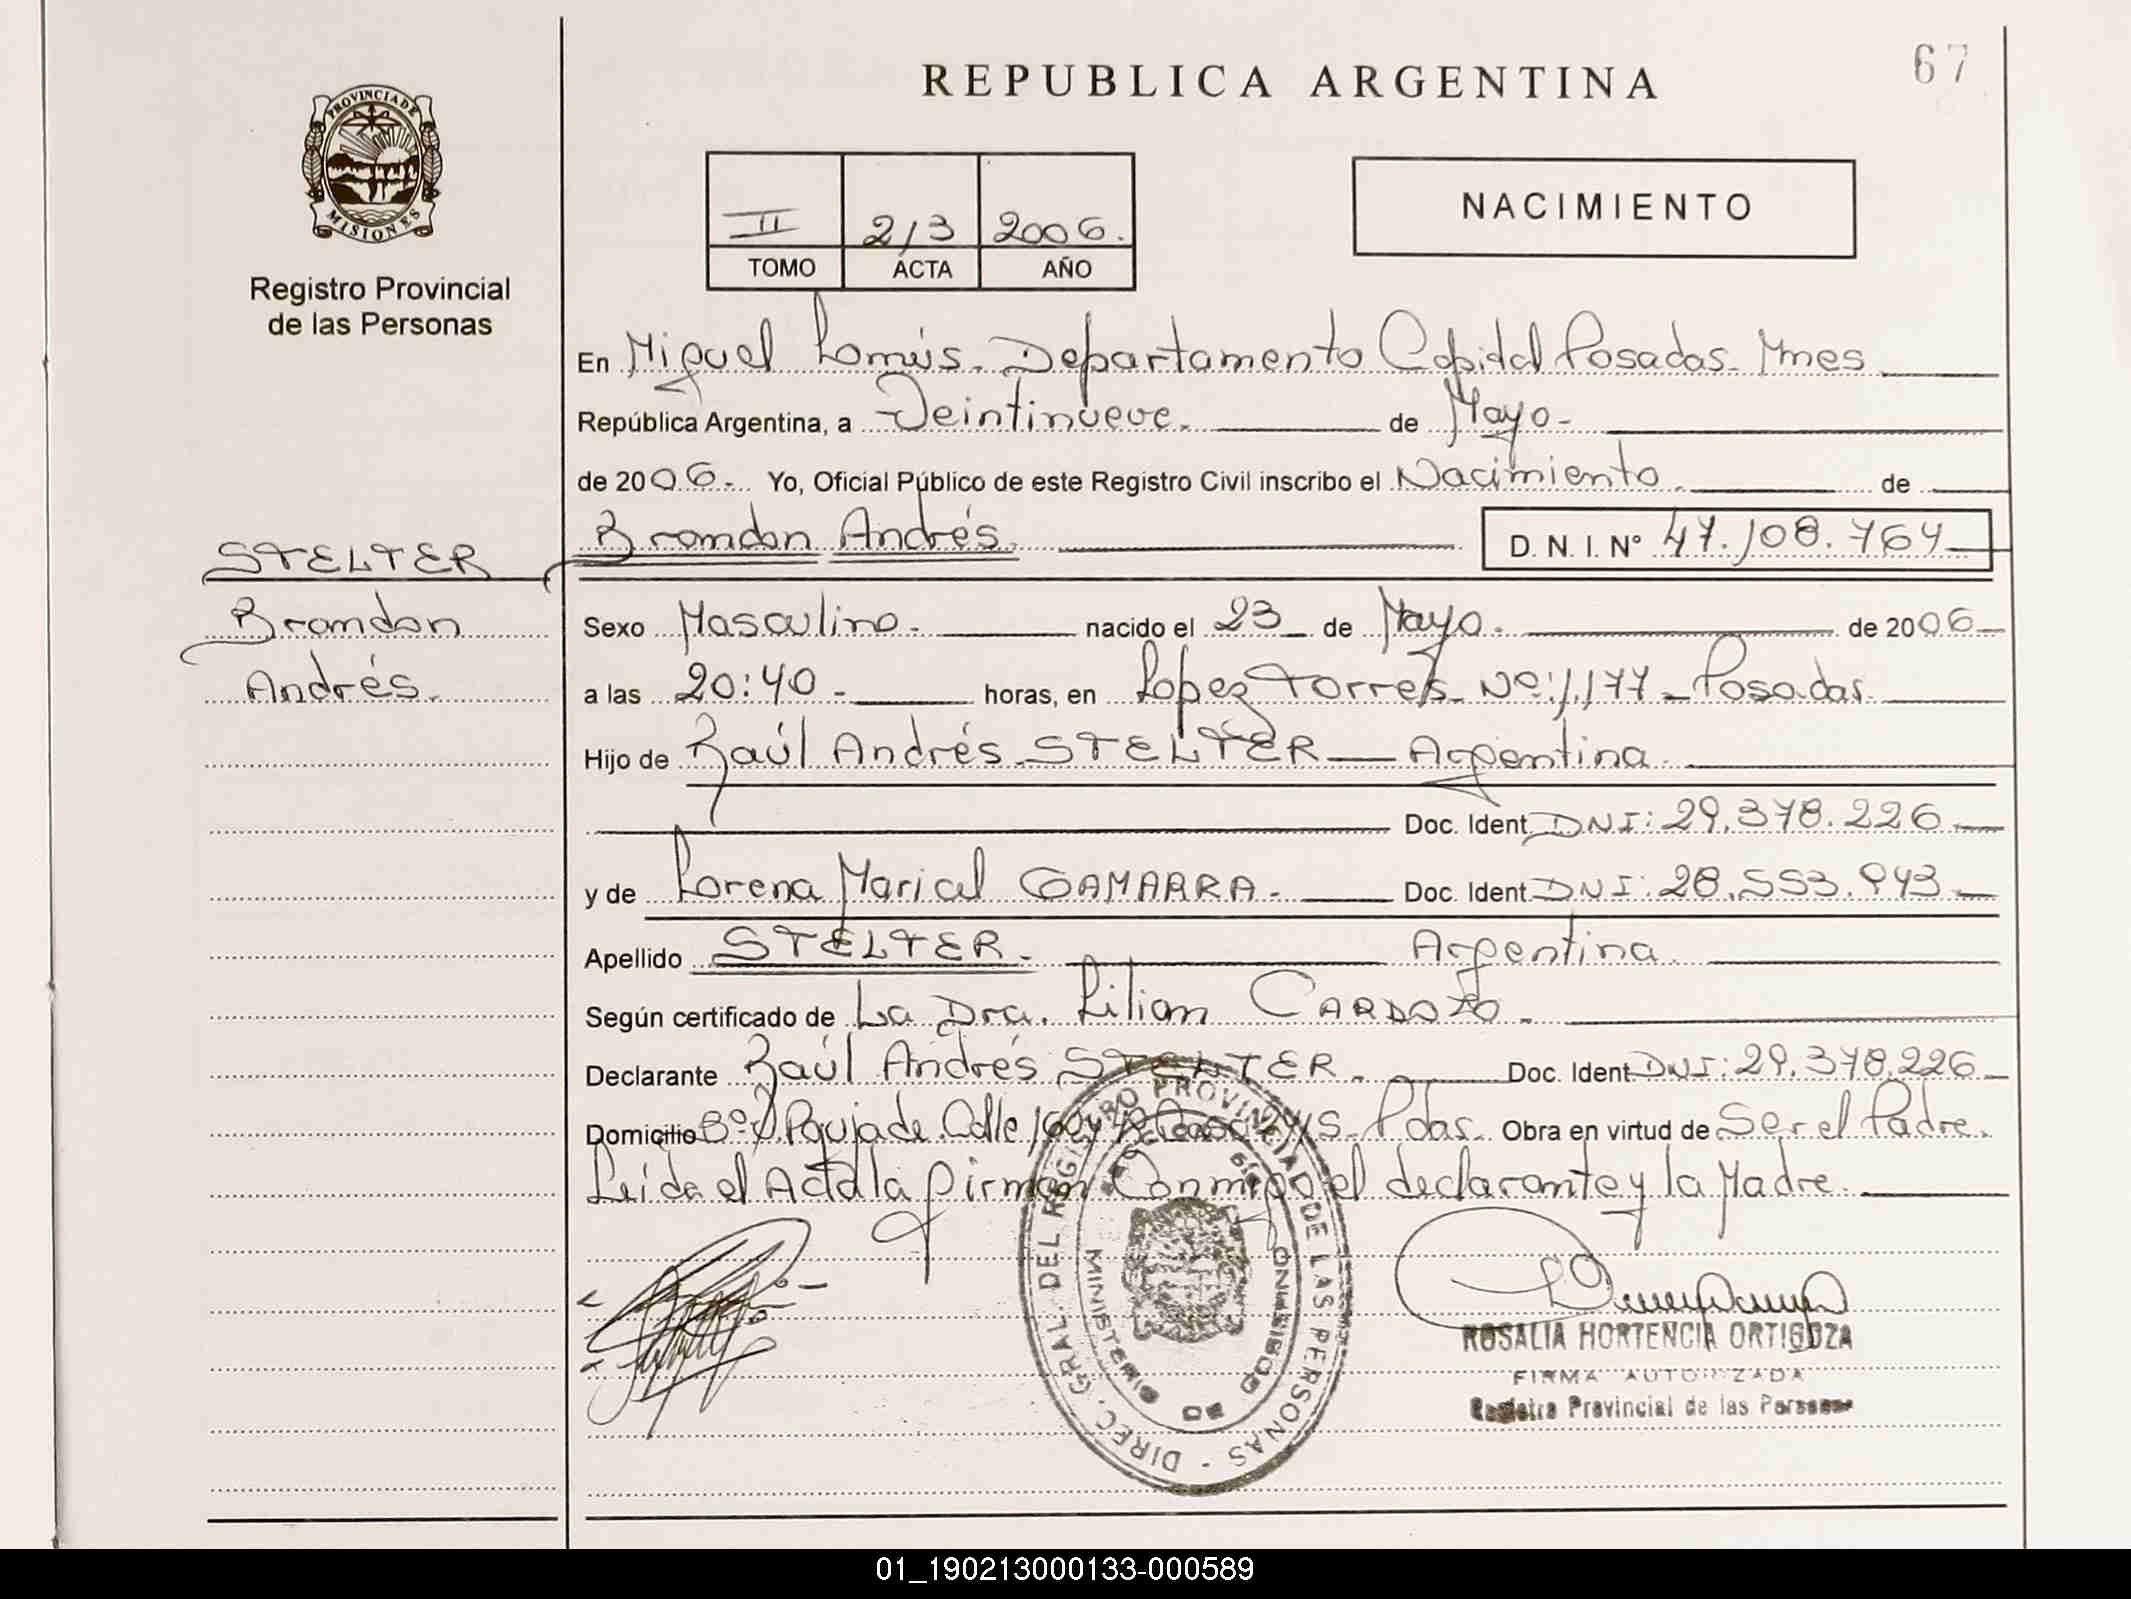 67
REPUBLICA ARGENTINA
PROVINCIA DE
MISIONES
Registro Provincial
de las Personas
II 213 2006.
TOMO ACTA AÑO
NACIMIENTO
En Miguel Lanús. Departamento Capital Posadas. Mnes
República Argentina, a Veintinueve. de Mayo.
de 2006. Yo, Oficial Público de este Registro Civil inscribo el Nacimiento. de
Brandon Andrés. D. N. I. Nº 47.108.764
STELTER
Brandon
Andrés.
Sexo Masculino. nacido el 23 de Mayo. de 2006
a las 20:40 horas, en Lopez Torres Nº: 1.177 Posadas.
Hijo de Raúl Andrés STELTER Argentina.
Doc. Ident DNI: 29.378.226
y de Lorena Maricel GAMARRA. Doc. Ident DNI: 28.553.943
Apellido STELTER. Argentina.
Según certificado de La Dra. Lilian CARDOZO.
Declarante Raúl Andrés STELTER. Doc. Ident DNI: 29.378.226
Domicilio Bº Yº Calle Pdas. Obra en virtud de Ser el Padre.
Leida el Acta la firman Conmigo el declarante y la Madre.
DIREC. GRAL. DEL REGISTRO PROVINCIAL DE LAS PERSONAS
MINISTERIO DE GOBIERNO
ROSALIA HORTENCIA ORTIGOZA
FIRMA AUTORIZADA
Registro Provincial de las Personas
01_190213000133-000589